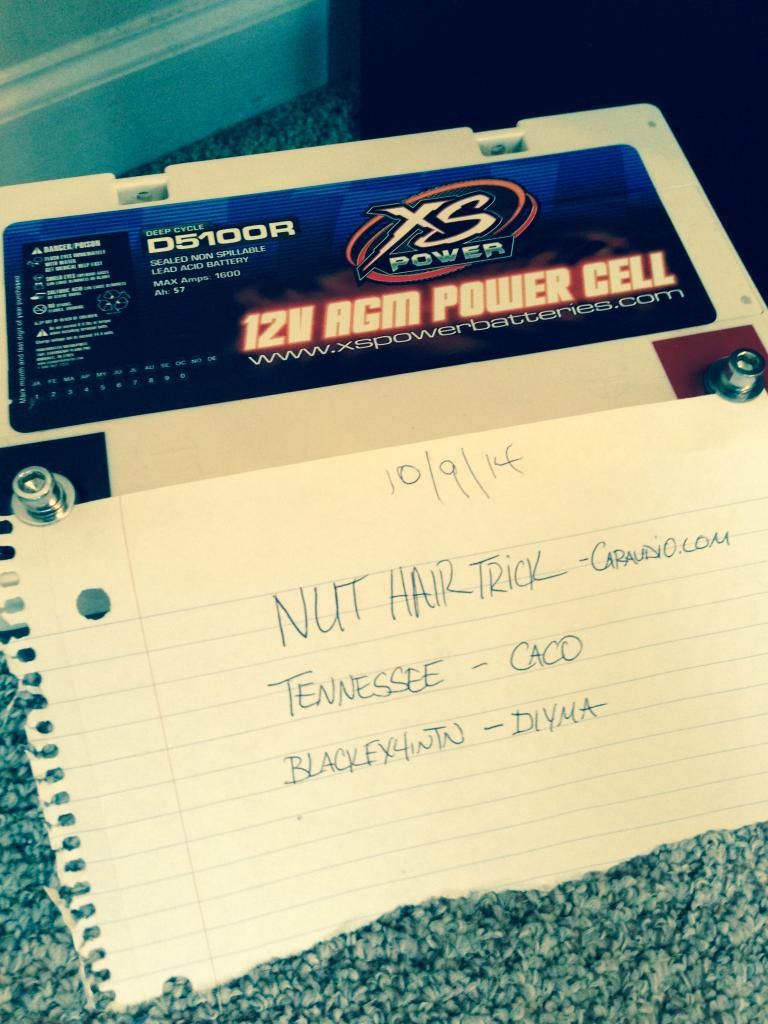 DANGER/POISON
DEEP CYCLE
D5100R
SEALED NON SPILLABLE
LEAD ACID BATTERY
MAX Amps: 1600
Ah: 57
XS
POWER
12V AGM POWER CELL
www.xspowerbatteries.com
Mark month and last digit of year purchased
JA FE MA AP MY JU JL AU SE OC NO DE
1 2 3 4 5 6 7 8 9 0
10/9/14
NUT HAIR TRICK - CARAUDIO.COM
TENNESSEE - CACO
BLACKFX4INTN - DIYMA